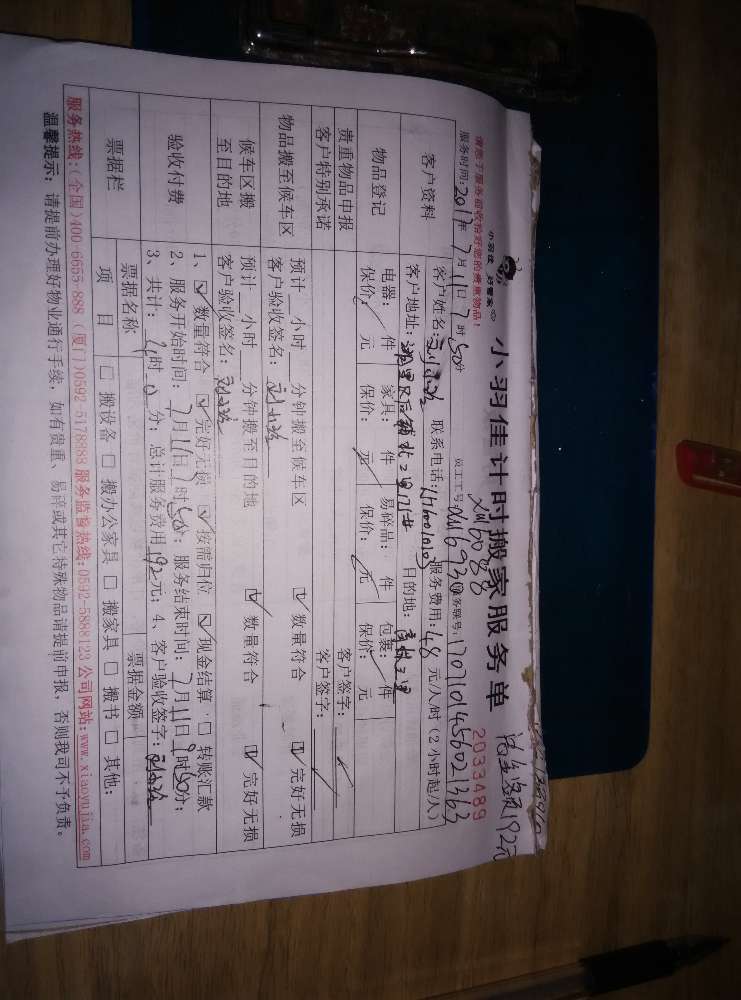 小羽佳 好管家
小羽佳计时搬家服务单
活动签收192元
请您于服务前收拾好您的贵重物品!
2033489
服务时间:2017年7月11日7时50分
员工工号:
服务联号:1707101456021363
客户资料
客户姓名:
联系电话:
服务费用:48元/人/时(2小时起/人)
客户地址:
目的地:
物品登记
电器: 件 家具: 件 易碎品: 件 包裹: 件
保价: 元 保价: 元 保价: 元 保价: 元
贵重物品申报
客户签字:
客户特别承诺
客户签字:
物品搬至候车区
预计 小时 分钟搬至候车区
☑ 数量符合 ☑ 完好无损
客户验收签名:
候车区搬至目的地
预计 小时 分钟搬至目的地
☑ 数量符合 ☑ 完好无损
客户验收签名:
验收付费
1、☑ 数量符合 ☑ 完好无损 ☑ 按需归位 ☑ 现金结算 □ 转账汇款
2、服务开始时间:7月11日7时50分;服务结束时间:7月11日9时50分;
3、共计:2时0分;总计服务费用192元;4、客户验收签字:
票据栏
票据名称
票据金额
项 目
□ 搬设备 □ 搬办公家具 □ 搬家具 □ 搬书 □ 其他:
服务热线:(全国)400-6655-888 (厦门)0592-5178888 服务监督热线:0592-5888123 公司网站:www.xiaoyujia.com
温馨提示:请提前办理好物业通行手续;如有贵重、易碎或其它特殊物品请提前申报,否则我司不予负责。